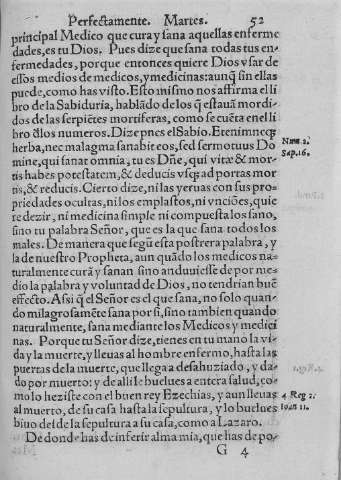 Perfectamente. Martes. 52
principal Medico que cura y sana aquellas enferme
dades, es tu Dios. Pues dize que sana todas tus en-
fermedades, porque entonces quiere Dios vsar de
essos medios de medicos, y medicinas: aunq̃ sin ellas
puede, como has visto. Esto mismo nos affirma el li
bro de la Sabiduria, hablãdo de los q̃ estauã mordi-
dos de las serpiẽtes mortiferas, como se cuẽta en el li
bro đlos numeros. Dize pues el Sabio. Etenim neq;
Num. 2.
herba, nec malagma sanabit eos, sed sermo tuus Do
Sap. 16.
mine, qui sanat omnia, tu es Dñe, qui vitæ & mor-
tis habes potestatem, & deducis vsq; ad portas mor
tis, & reducis. Cierto dize, ni las yeruas con sus pro-
piedades ocultas, ni los emplastos, ni vnciões, quie
re dezir, ni medicina simple ni compuesta los sano,
sino tu palabra Señor, que es la que sana todos los
males. De manera que segũ esta postrera palabra, y
la de nuestro Propheta, aun quãdo los medicos na-
turalmente curã y sanan sino anduuiesse de por me-
dio la palabra y voluntad de Dios, no tendrian buẽ
effecto. Assi q̃ el Señor es el que sana, no solo quan-
do milagrosamẽte sana por si, sino tambien quando
naturalmente, sana mediante los Medicos y medici
nas. Porque tu Señor dize, tienes en tu mano la vi-
da y la muerte, y lleuas al hombre enfermo, hasta las
puertas de la muerte, que llega a desahuziado, y da-
do por muerto: y de alli le buelues a entera salud, co-
mo lo heziste con el buen rey Ezechias, y aun lleuas
4 Reg 2.
al muerto, de su casa hasta la sepultura, y lo buelues
Ioan 11.
biuo desde la sepultura a su casa, como a Lazaro.
De donde has de inferir alma mia, que has de po-
G 4